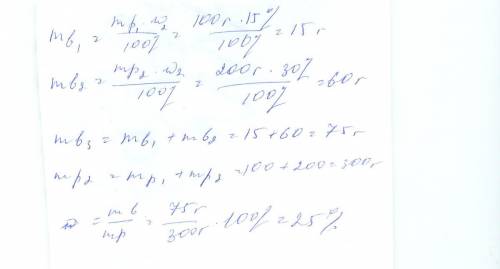 mв₁ = mр₁ · w₂ / 100% = 100г · 15% / 100% = 15 г
mв₂ = mр₂ · w₂ / 100% = 200г · 30% / 100% = 60 г
mв₃ = mв₁ + mв₂ = 15 + 60 = 75 г
mр₂ = mр₁ + mр₂ = 100 + 200 = 300г
= mв / mр = 75г / 300г · 100% = 25%